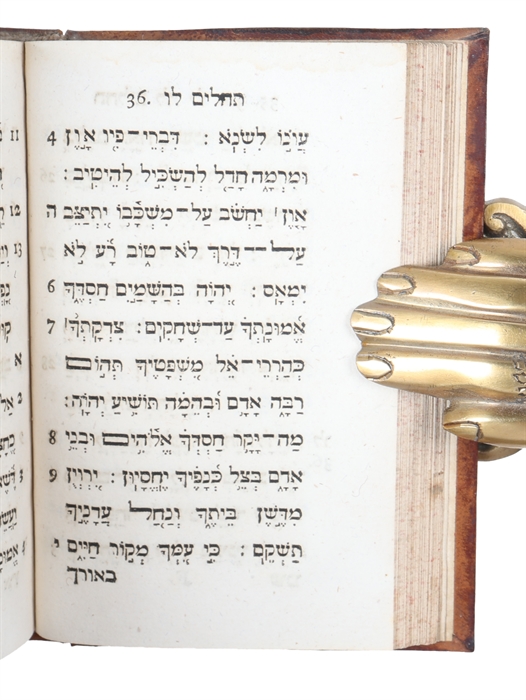 תהלים לו .36
עֲוֺנ֣וֹ לִשְׂנֹֽא׃ דִּבְרֵי־פִ֭יו אָ֣וֶן 4
וּמִרְמָ֑ה חָדַ֖ל לְהַשְׂכִּ֣יל לְהֵיטִֽיב׃
אָ֤וֶן ׀ יַחְשֹׁ֗ב עַֽל־מִשְׁכָּ֫ב֥וֹ יִ֭תְיַצֵּב ה
עַל־דֶּ֣רֶךְ לֹא־ט֑וֹב רָ֝֗ע לֹ֣א
יִמְאָֽס׃ יְ֭הוָה בְּהַשָּׁמַ֣יִם חַסְדֶּ֑ךָ 6
אֱ֝מֽוּנָתְךָ֗ עַד־שְׁחָקִֽים׃ צִדְקָֽתְךָ֨ ׀ 7
כְּֽהַרְרֵי־אֵ֗ל מִ֭שְׁפָּטֶיךָ תְּה֣וֹם
רַבָּ֑ה אָ֤דָֽם וּבְהֵמָ֖ה תוֹשִׁ֣יעַ יְהוָֽה׃
מַה־יָּקָ֥ר חַסְדְּךָ֗ אֱלֹ֫הִ֥ים וּבְנֵ֥י 8
אָדָ֑ם בְּצֵ֥ל כְּ֝נָפֶ֗יךָ יֶחֱסָיֽוּן׃ יִ֭רְוְיֻן 9
מִדֶּ֣שֶׁן בֵּיתֶ֑ךָ וְנַ֖חַל עֲדָנֶ֣יךָ
תַשְׁקֵֽם׃ כִּֽי־עִ֭מְּךָ מְק֣וֹר חַיִּ֑ים י
באורך